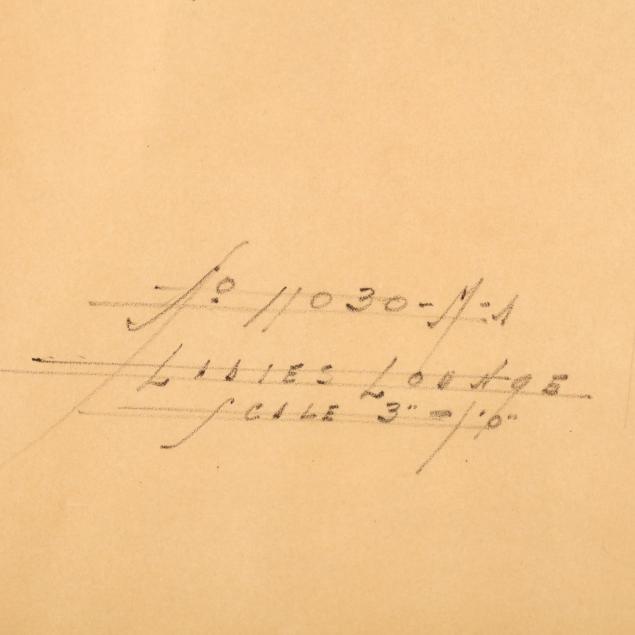 No 11030-N-A
LADIES LOUNGE
SCALE 3" = 1'0"